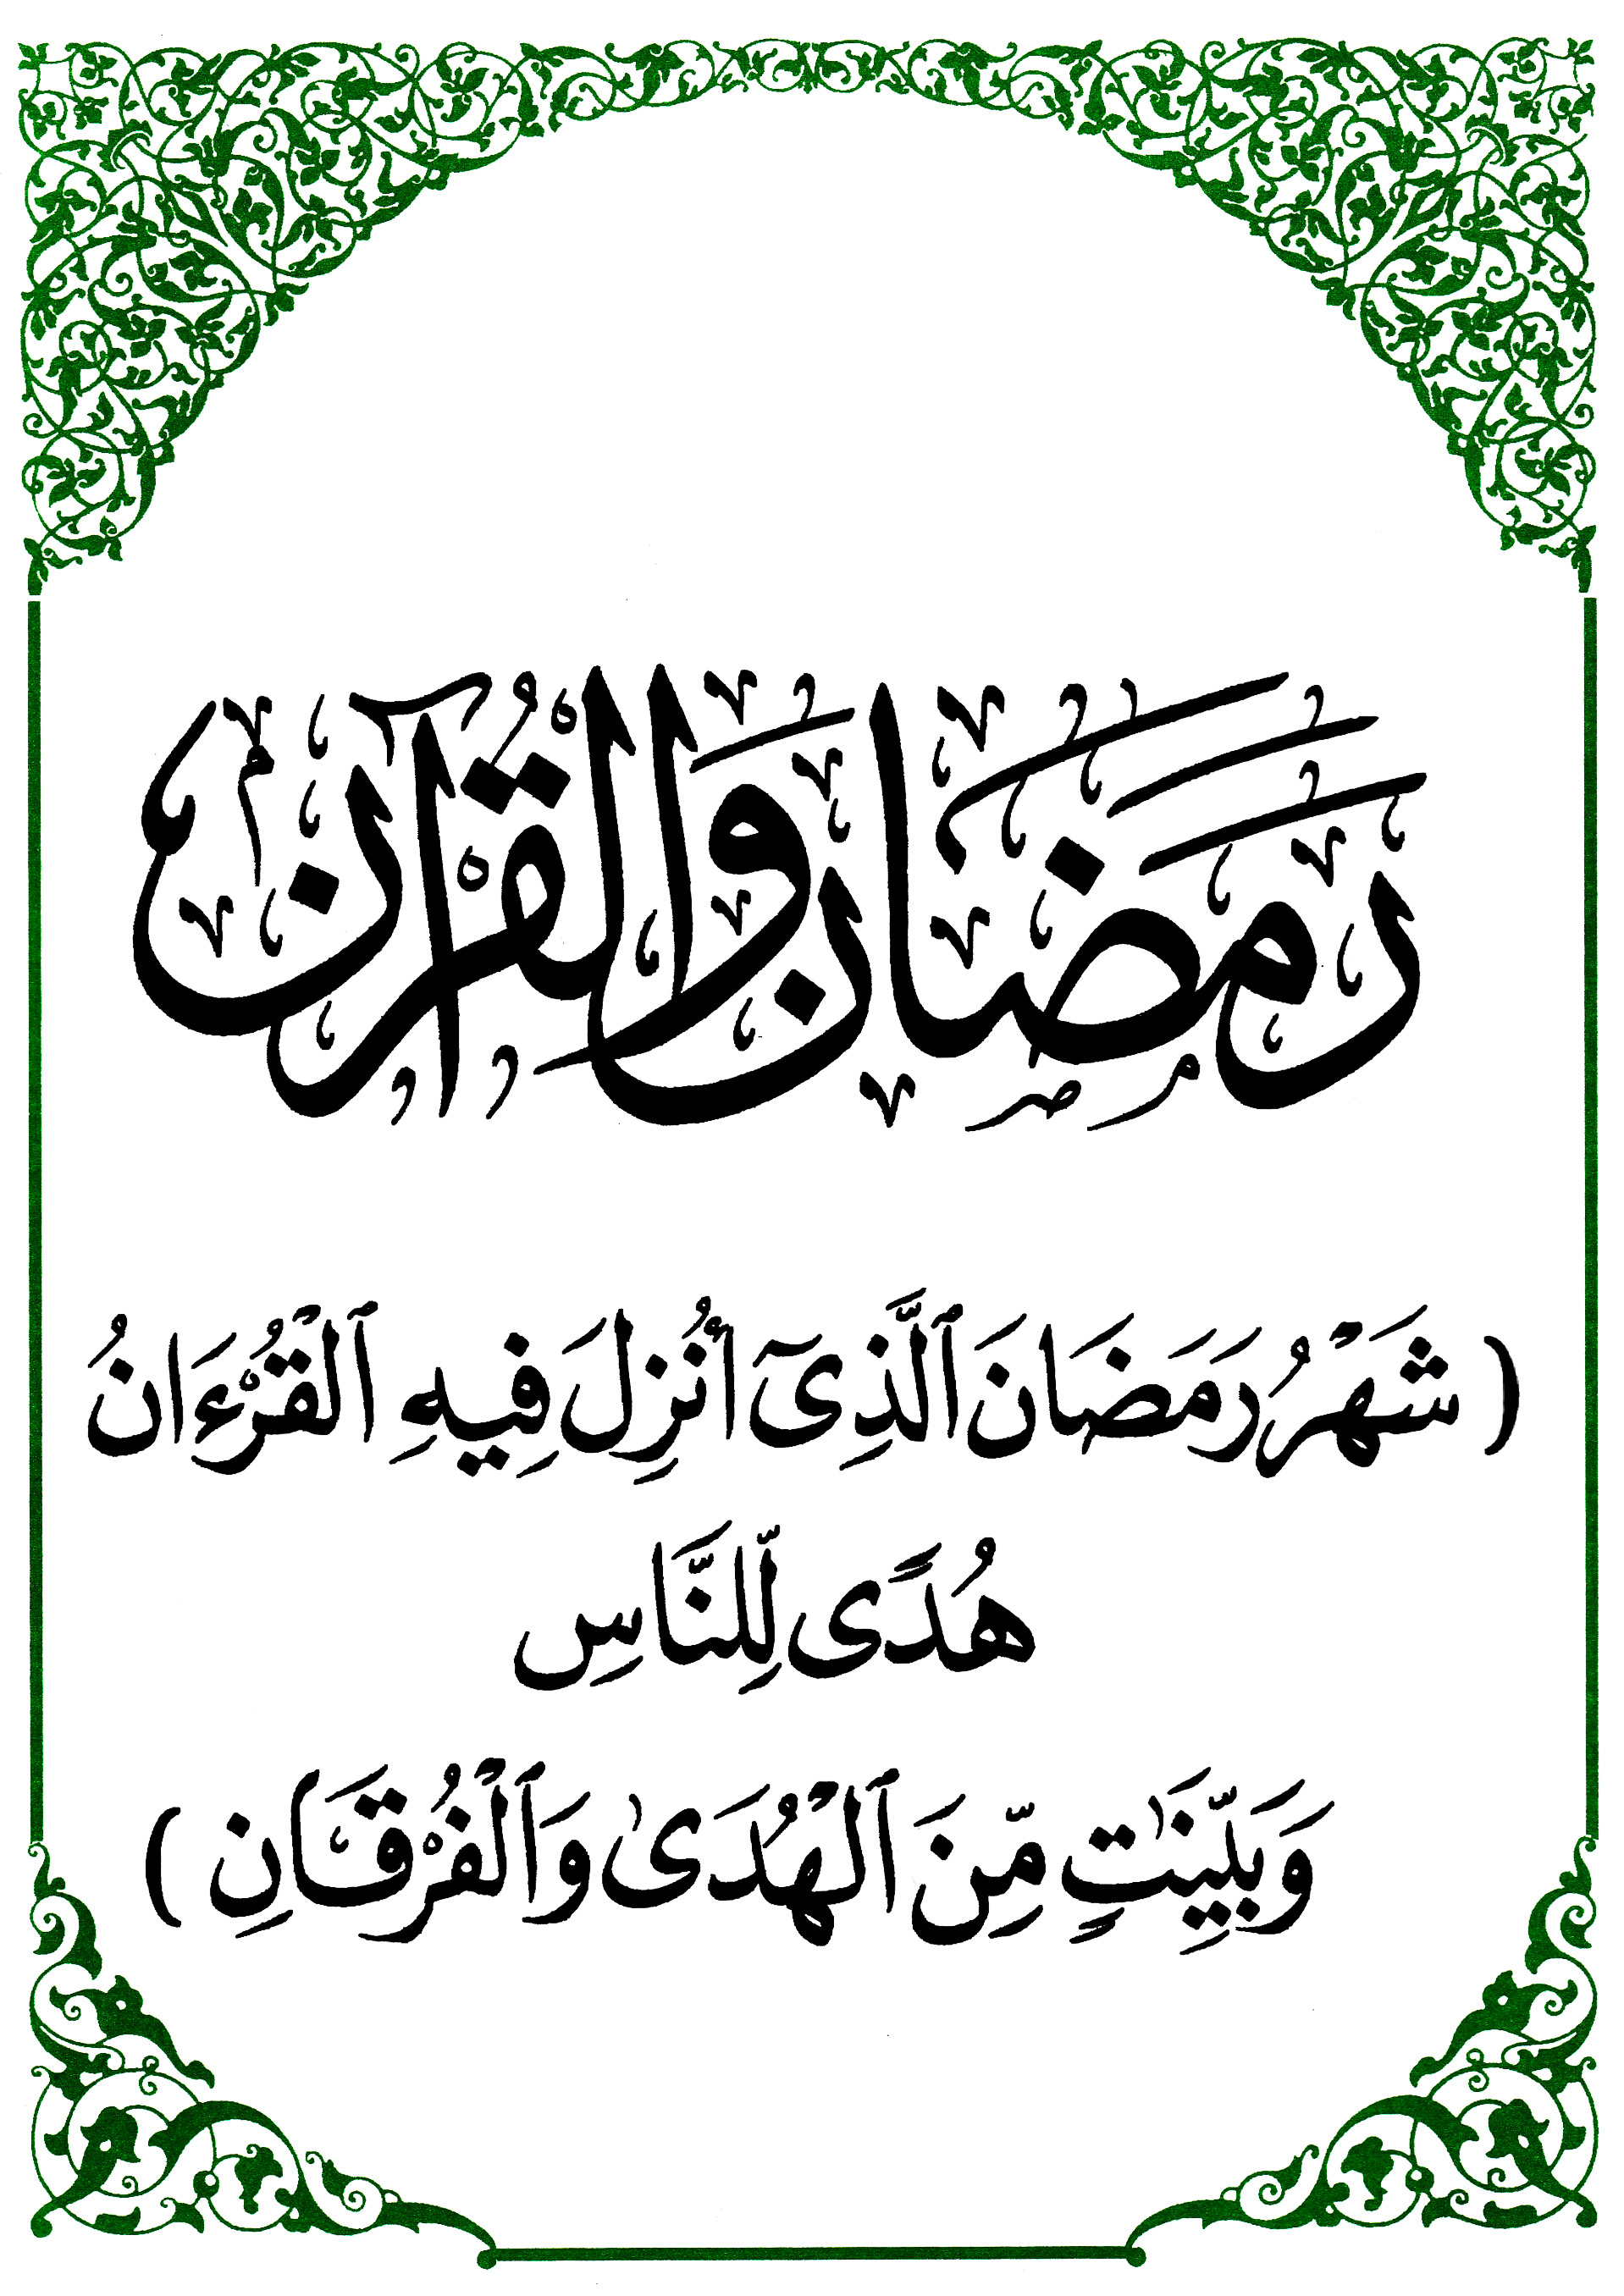 رمضان والقرآن
( شَهْرُ رَمَضَانَ ٱلَّذِىٓ أُنزِلَ فِيهِ ٱلْقُرْءَانُ
هُدًى لِّلنَّاسِ
وَبَيِّنَٰتٍ مِّنَ ٱلْهُدَىٰ وَٱلْفُرْقَانِ )